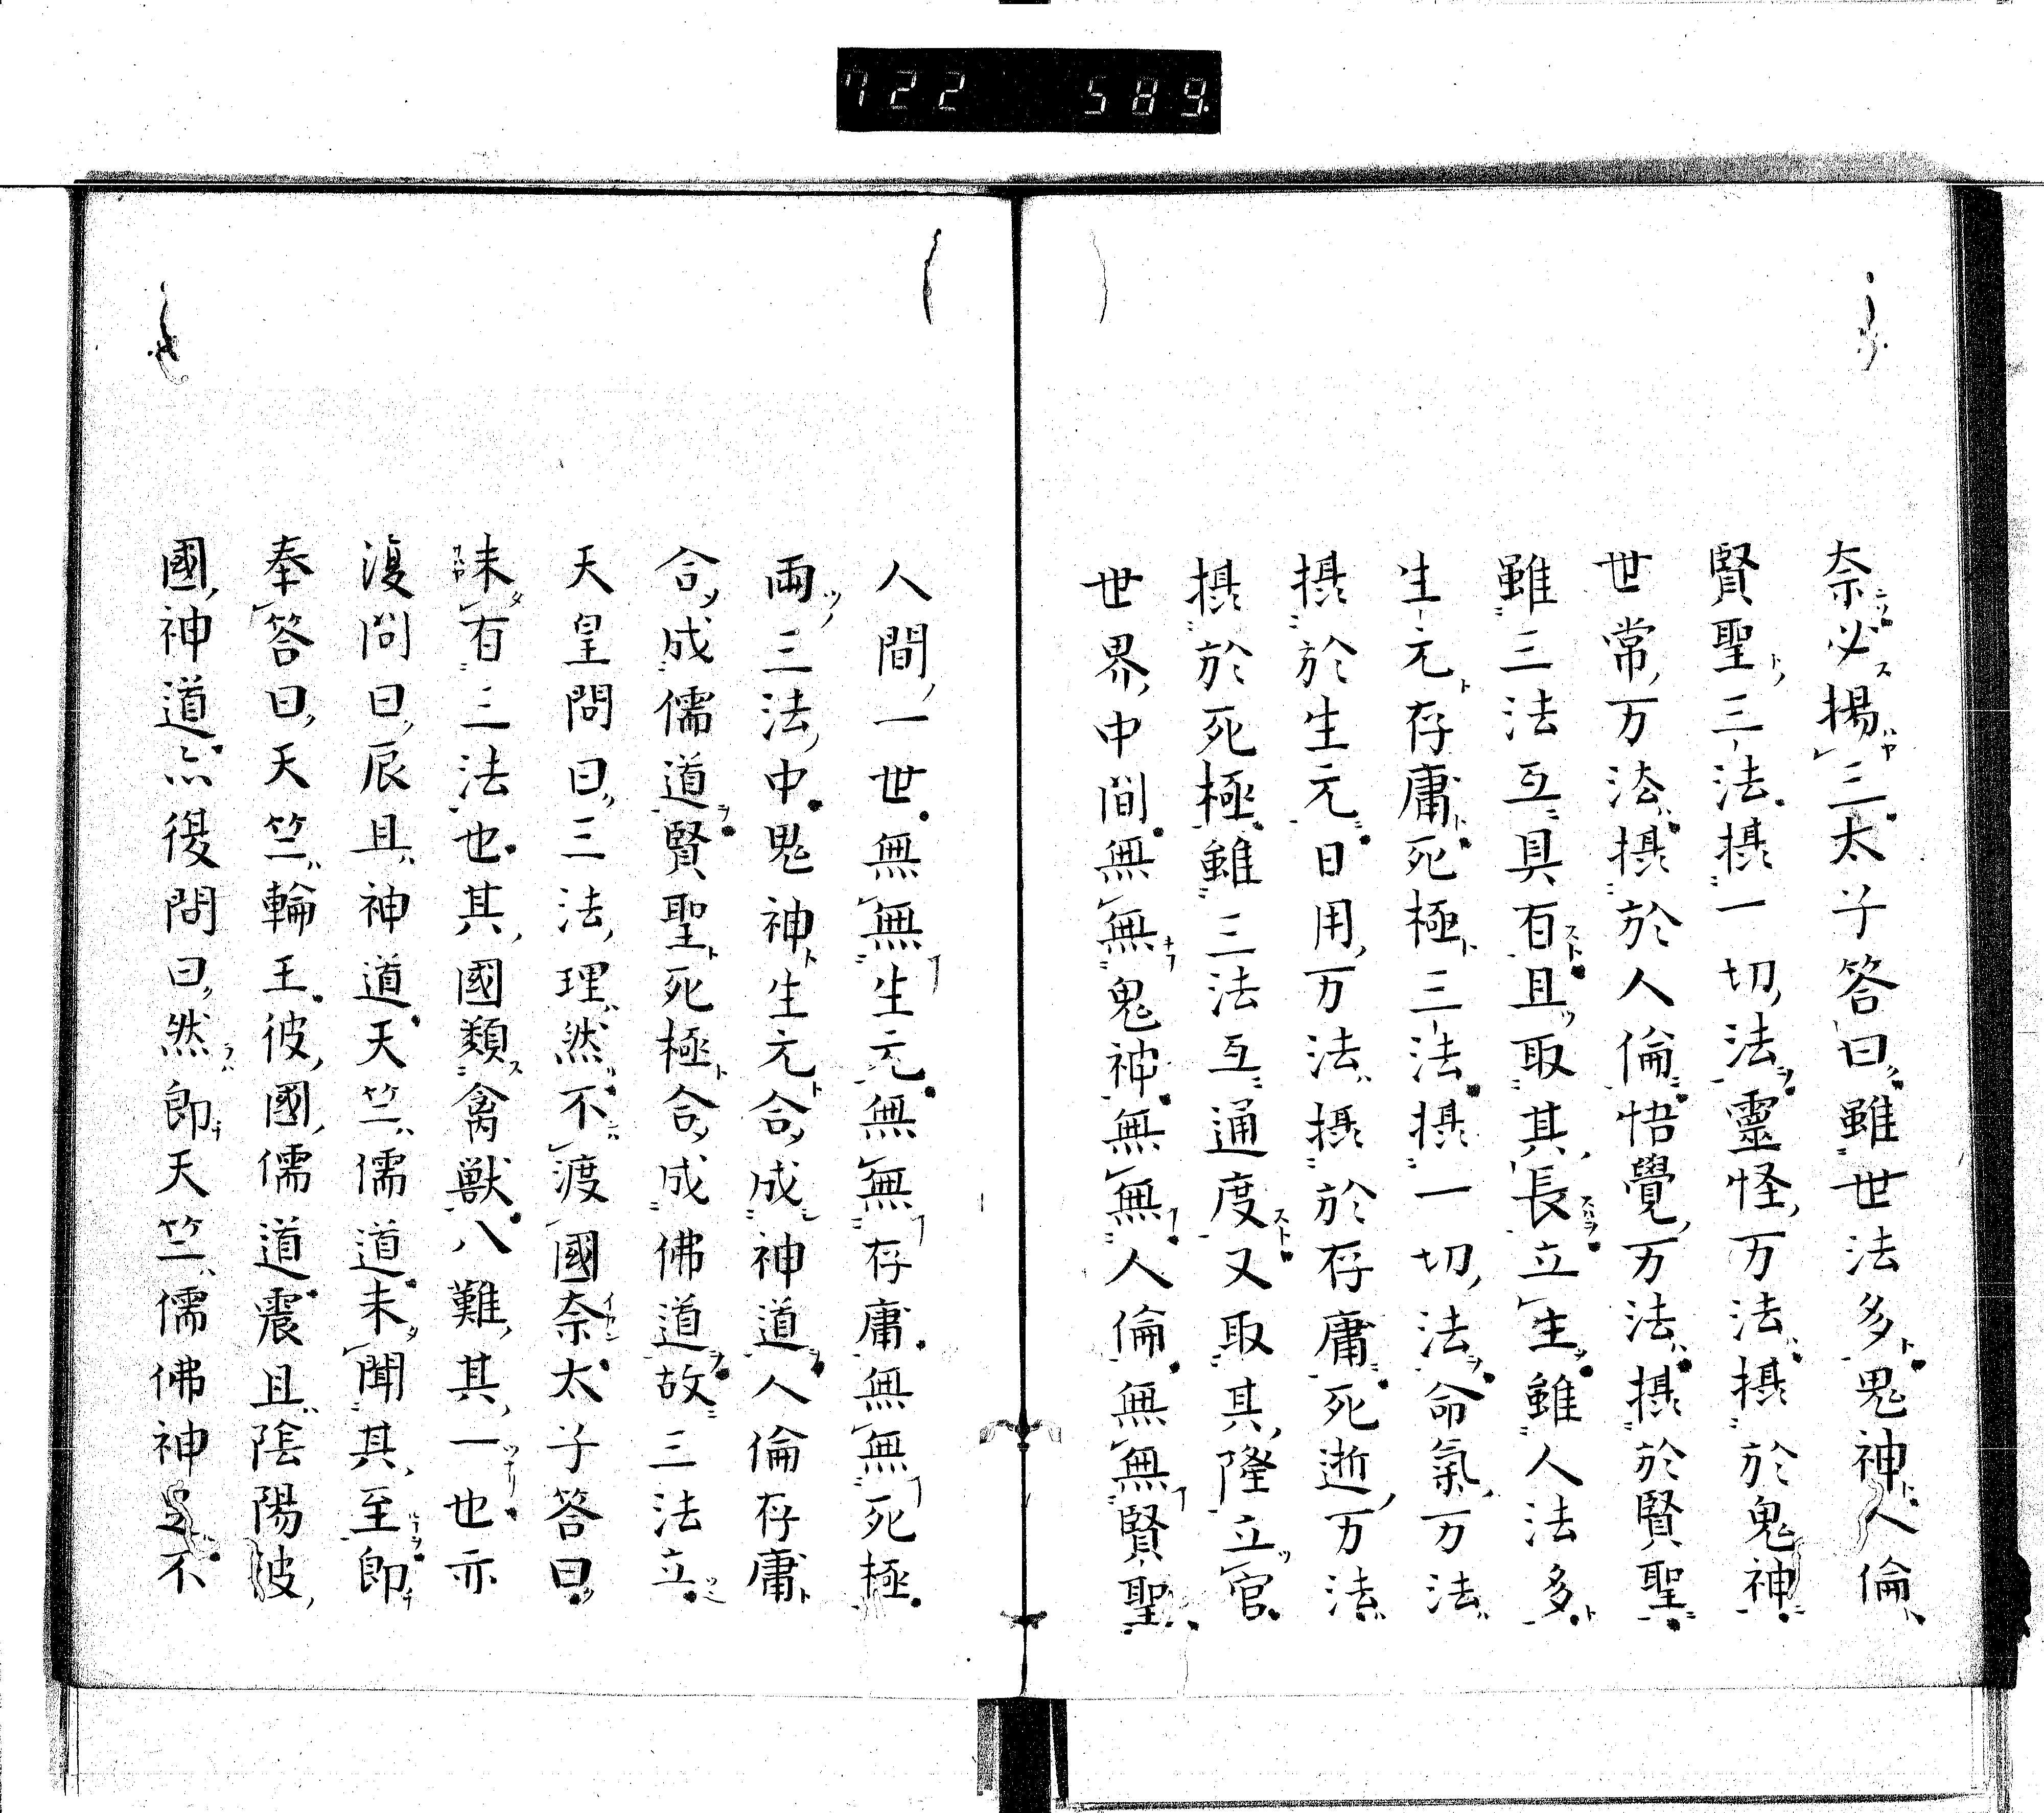 722 589
奈必揚三太子答曰雖世法多鬼神人倫
賢聖三法摂一切法靈怪万法摂於鬼神
世常万法摂於人倫悟覺万法摂於賢聖
雖三法互具有且取其長立生雖人法多
生元存庸死極三法摂一切法命氣万法
摂於生元日用万法摂於存庸死逝万法
摂於死極雖三法互通度又取其隆立官
世界中間無無鬼神無無人倫無無賢聖
人間一世無無生元無無存庸無無死極
兩三法中鬼神生元合成神道人倫存庸
合成儒道賢聖死極合成佛道故三法立
天皇問曰三法理然不渡國奈太子答曰
未有三法也其國類禽獣八難其一也亦
復問曰辰旦神道天竺儒道未聞其至即
奉答曰天竺輪王彼國儒道震旦陰陽彼
國神道亦復問曰然即天竺儒佛神
不